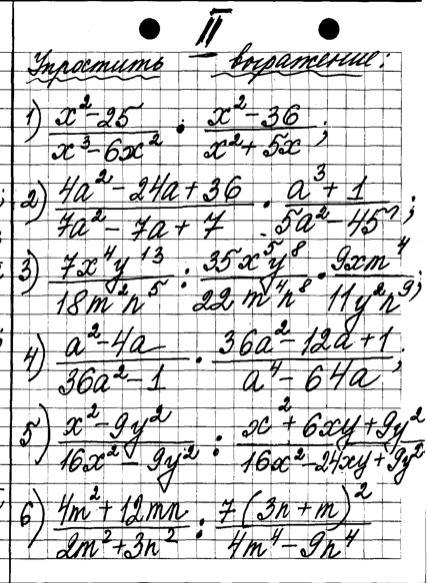 II
Упростить выражение:
1) (x² - 25)/(x³ - 6x²) · (x² - 36)/(x² + 5x);
2) (4a² - 24a + 36)/(7a² - 7a + 7) · (a³ + 1)/(5a² - 45);
3) (7x⁴y¹³)/(18m²n⁵) : (35x⁵y⁸)/(22m⁴n⁸) · (9xm⁴)/(11y²n⁹);
4) (a² - 4a)/(36a² - 1) · (36a² - 12a + 1)/(a⁴ - 64a);
5) (x² - 9y²)/(16x² - 9y²) : (x² + 6xy + 9y²)/(16x² - 24xy + 9y²)
6) (4m² + 12mn)/(2m² + 3n²) : (7(3n + m)²)/(4m⁴ - 9n⁴)